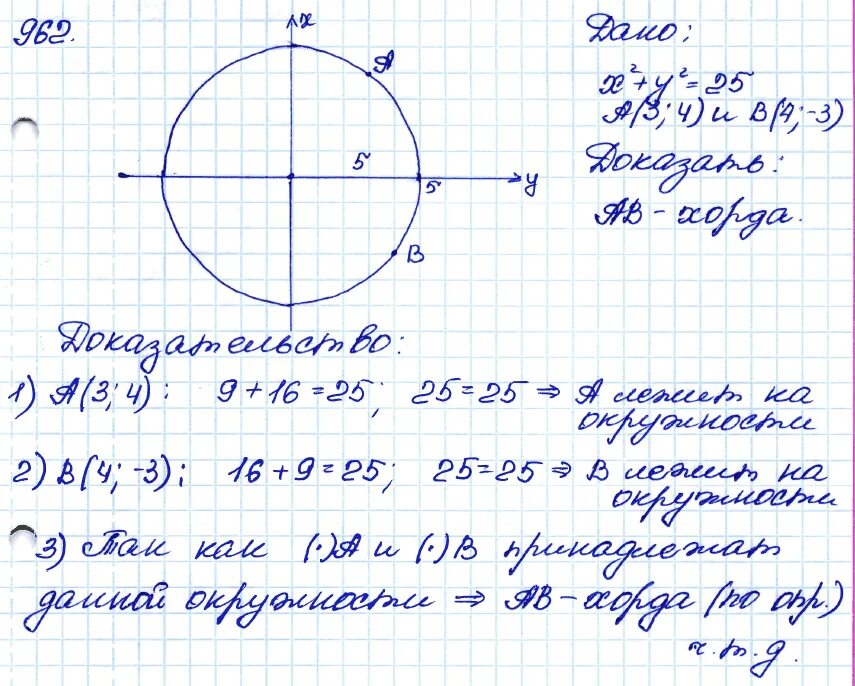 962.
x
A
5
5
y
B
Дано:
x²+y²=25
A(3; 4) и B(4; -3)
Доказать:
AB – хорда.
Доказательство:
1) A(3; 4): 9+16=25; 25=25 ⇒ A лежит на
окружности
2) B(4; -3); 16+9=25; 25=25 ⇒ B лежит на
окружности
3) Так как (·)A и (·)B принадлежат
данной окружности ⇒ AB – хорда (по опр.)
ч.т.д.